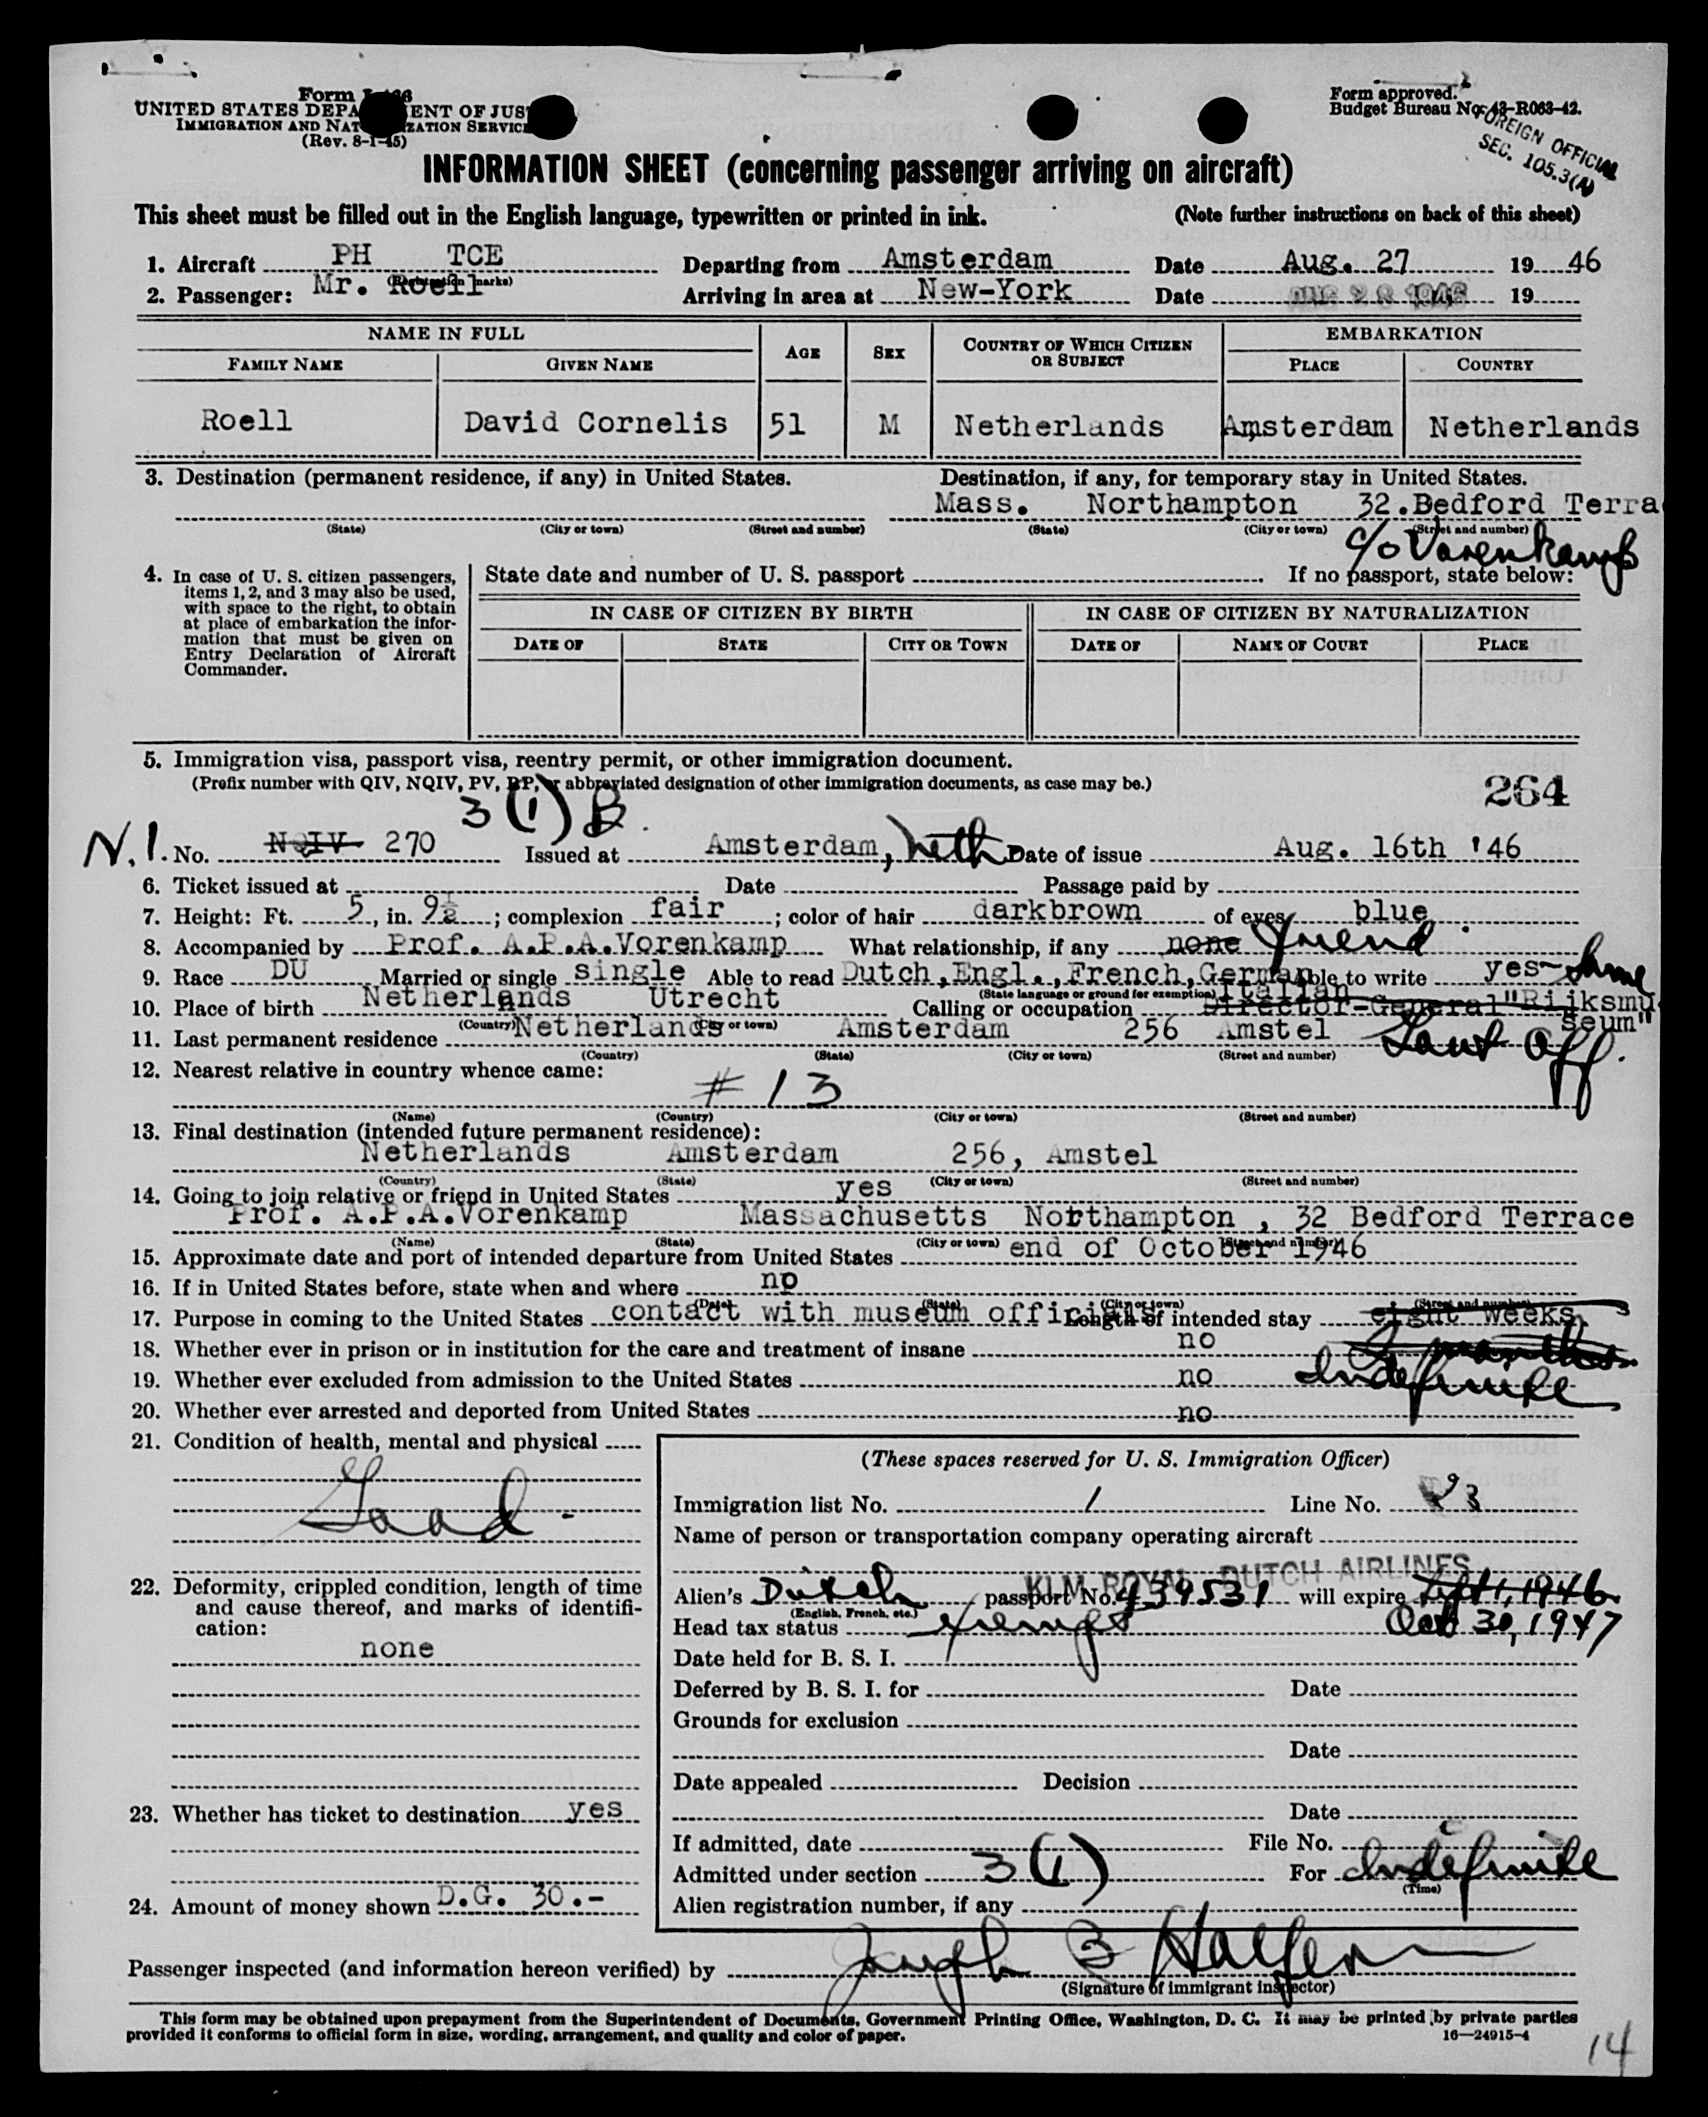 Form I-466
UNITED STATES DEPARTMENT OF JUSTICE
IMMIGRATION AND NATURALIZATION SERVICE
(Rev. 8-1-45)
Form approved.
Budget Bureau No. 43-R063-42.
FOREIGN OFFICIAL
SEC. 105.3(A)
INFORMATION SHEET (concerning passenger arriving on aircraft)
This sheet must be filled out in the English language, typewritten or printed in ink. (Note further instructions on back of this sheet)
1. Aircraft PH TCE Departing from Amsterdam Date Aug. 27 1946
(Registration marks)
2. Passenger: Mr. Roell Arriving in area at New-York Date AUG 28 1946 19
NAME IN FULL AGE SEX COUNTRY OF WHICH CITIZEN OR SUBJECT EMBARKATION
FAMILY NAME GIVEN NAME PLACE COUNTRY
Roell David Cornelis 51 M Netherlands Amsterdam Netherlands
3. Destination (permanent residence, if any) in United States. Destination, if any, for temporary stay in United States.
Mass. Northampton 32.Bedford Terra
(State) (City or town) (Street and number) (State) (City or town) (Street and number)
c/o Vorenkamp
4. In case of U. S. citizen passengers, items 1, 2, and 3 may also be used, with space to the right, to obtain at place of embarkation the information that must be given on Entry Declaration of Aircraft Commander.
State date and number of U. S. passport If no passport, state below:
IN CASE OF CITIZEN BY BIRTH IN CASE OF CITIZEN BY NATURALIZATION
DATE OF STATE CITY OR TOWN DATE OF NAME OF COURT PLACE
5. Immigration visa, passport visa, reentry permit, or other immigration document.
(Prefix number with QIV, NQIV, PV, RP, or abbreviated designation of other immigration documents, as case may be.)
264
3(1) B.
N.I. No. NQIV 270 Issued at Amsterdam, Neth Date of issue Aug. 16th '46
6. Ticket issued at Date Passage paid by
7. Height: Ft. 5, in. 9½; complexion fair; color of hair darkbrown of eyes blue
8. Accompanied by Prof. A.P.A.Vorenkamp What relationship, if any none friend
9. Race DU Married or single single Able to read Dutch,Engl.,French,German Able to write yes- Same
(State language or ground for exemption) Italian
10. Place of birth Netherlands Utrecht Calling or occupation Director-General "Rijksmu
(Country) (City or town) seum"
11. Last permanent residence Netherlands Amsterdam 256 Amstel Govt Off.
(Country) (State) (City or town) (Street and number)
12. Nearest relative in country whence came:
# 13
(Name) (Country) (City or town) (Street and number)
13. Final destination (intended future permanent residence):
Netherlands Amsterdam 256, Amstel
(Country) (State) (City or town) (Street and number)
14. Going to join relative or friend in United States yes
Prof. A.P.A.Vorenkamp Massachusetts Northampton , 32 Bedford Terrace
(Name) (State) (City or town) (Street and number)
15. Approximate date and port of intended departure from United States end of October 1946
16. If in United States before, state when and where no
(Date) (State) (City or town) (Street and number)
17. Purpose in coming to the United States contact with museum officials Length of intended stay eight weeks
18. Whether ever in prison or in institution for the care and treatment of insane no months
19. Whether ever excluded from admission to the United States no Indefinite
20. Whether ever arrested and deported from United States no
21. Condition of health, mental and physical
Good -
22. Deformity, crippled condition, length of time and cause thereof, and marks of identification:
none
23. Whether has ticket to destination yes
24. Amount of money shown D.G. 30.-
(These spaces reserved for U. S. Immigration Officer)
Immigration list No. 1 Line No. 23
Name of person or transportation company operating aircraft
KLM ROYAL DUTCH AIRLINES
Alien's Dutch passport No. 439531 will expire Sept 1, 1946
(English, French, etc.)
Head tax status exempt Oct 30, 1947
Date held for B. S. I.
Deferred by B. S. I. for Date
Grounds for exclusion
Date
Date appealed Decision
Date
If admitted, date File No.
Admitted under section 3(1) For Indefinite
(Time)
Alien registration number, if any
Passenger inspected (and information hereon verified) by Joseph B Halfern
(Signature of immigrant inspector)
This form may be obtained upon prepayment from the Superintendent of Documents, Government Printing Office, Washington, D. C. It may be printed by private parties
provided it conforms to official form in size, wording, arrangement, and quality and color of paper. 16—24915-4
14